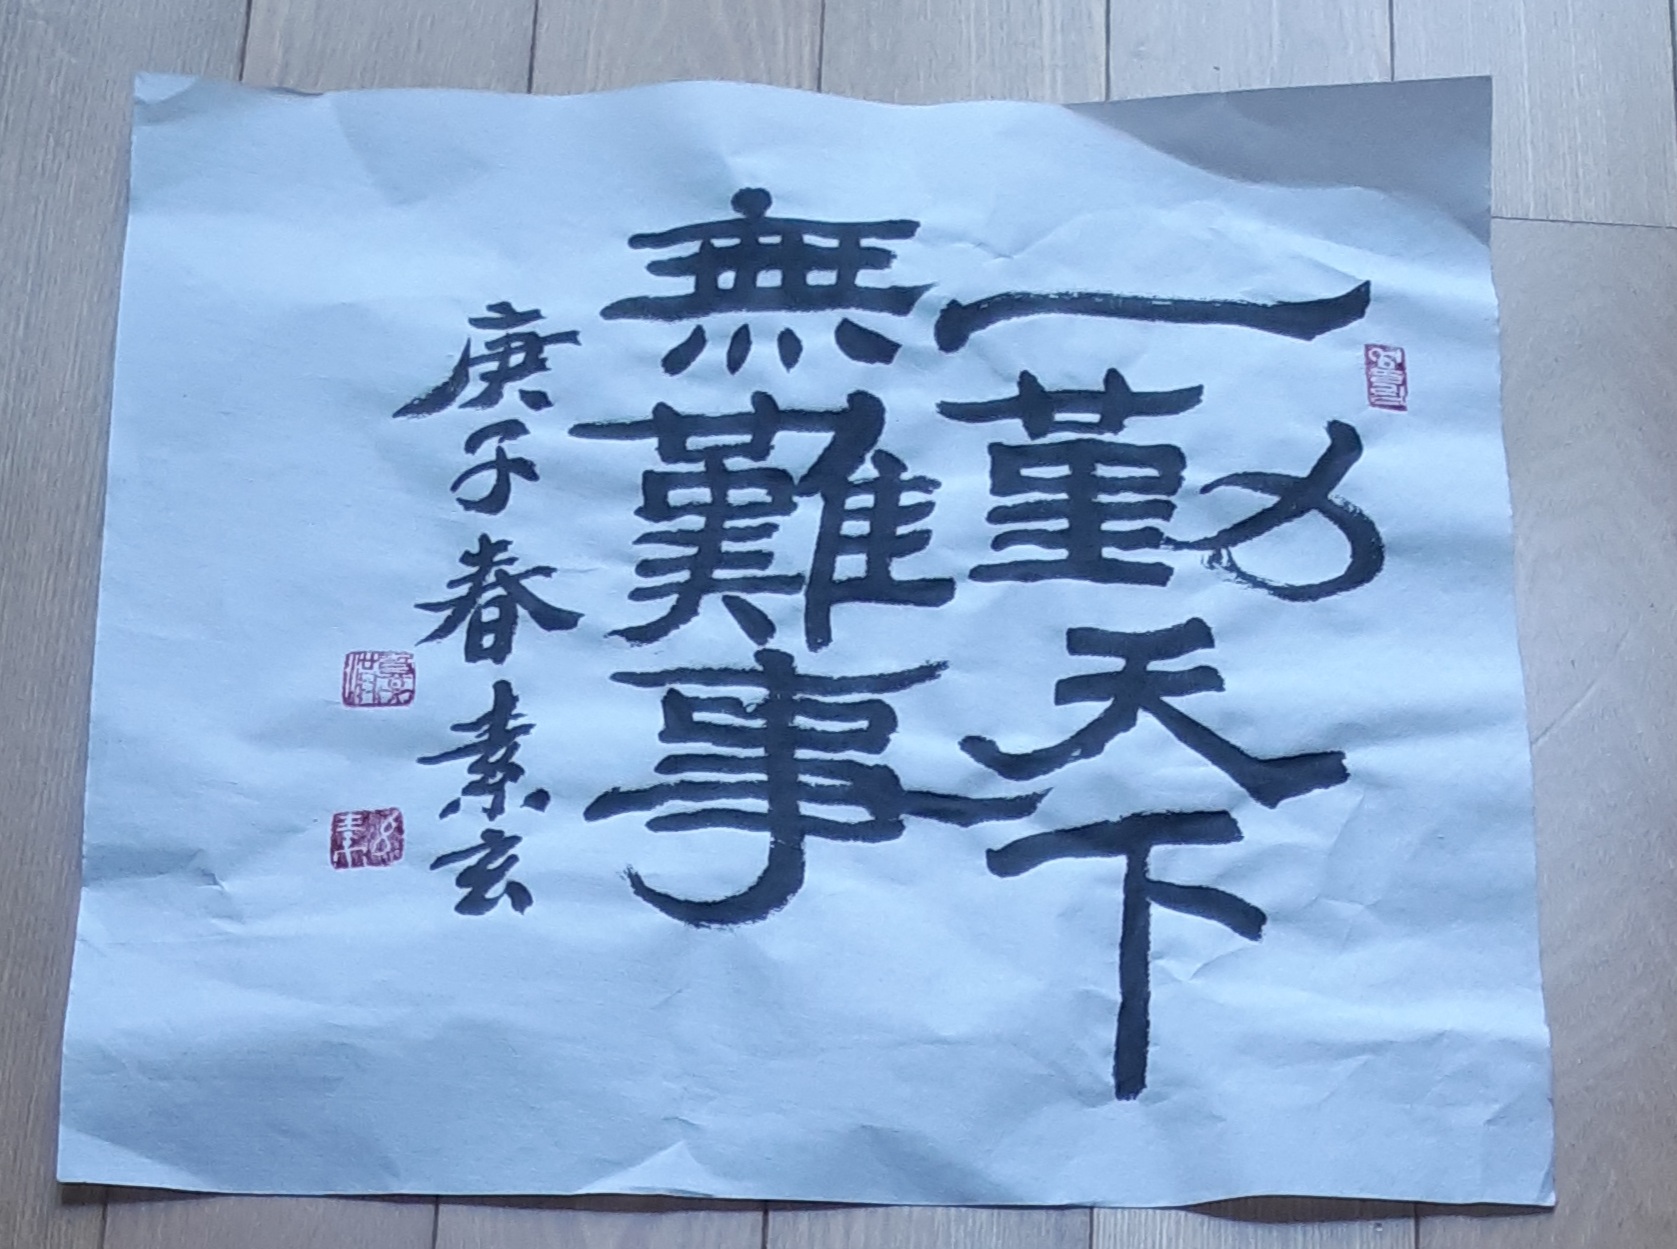 一勤天下
無難事
庚子春 素玄